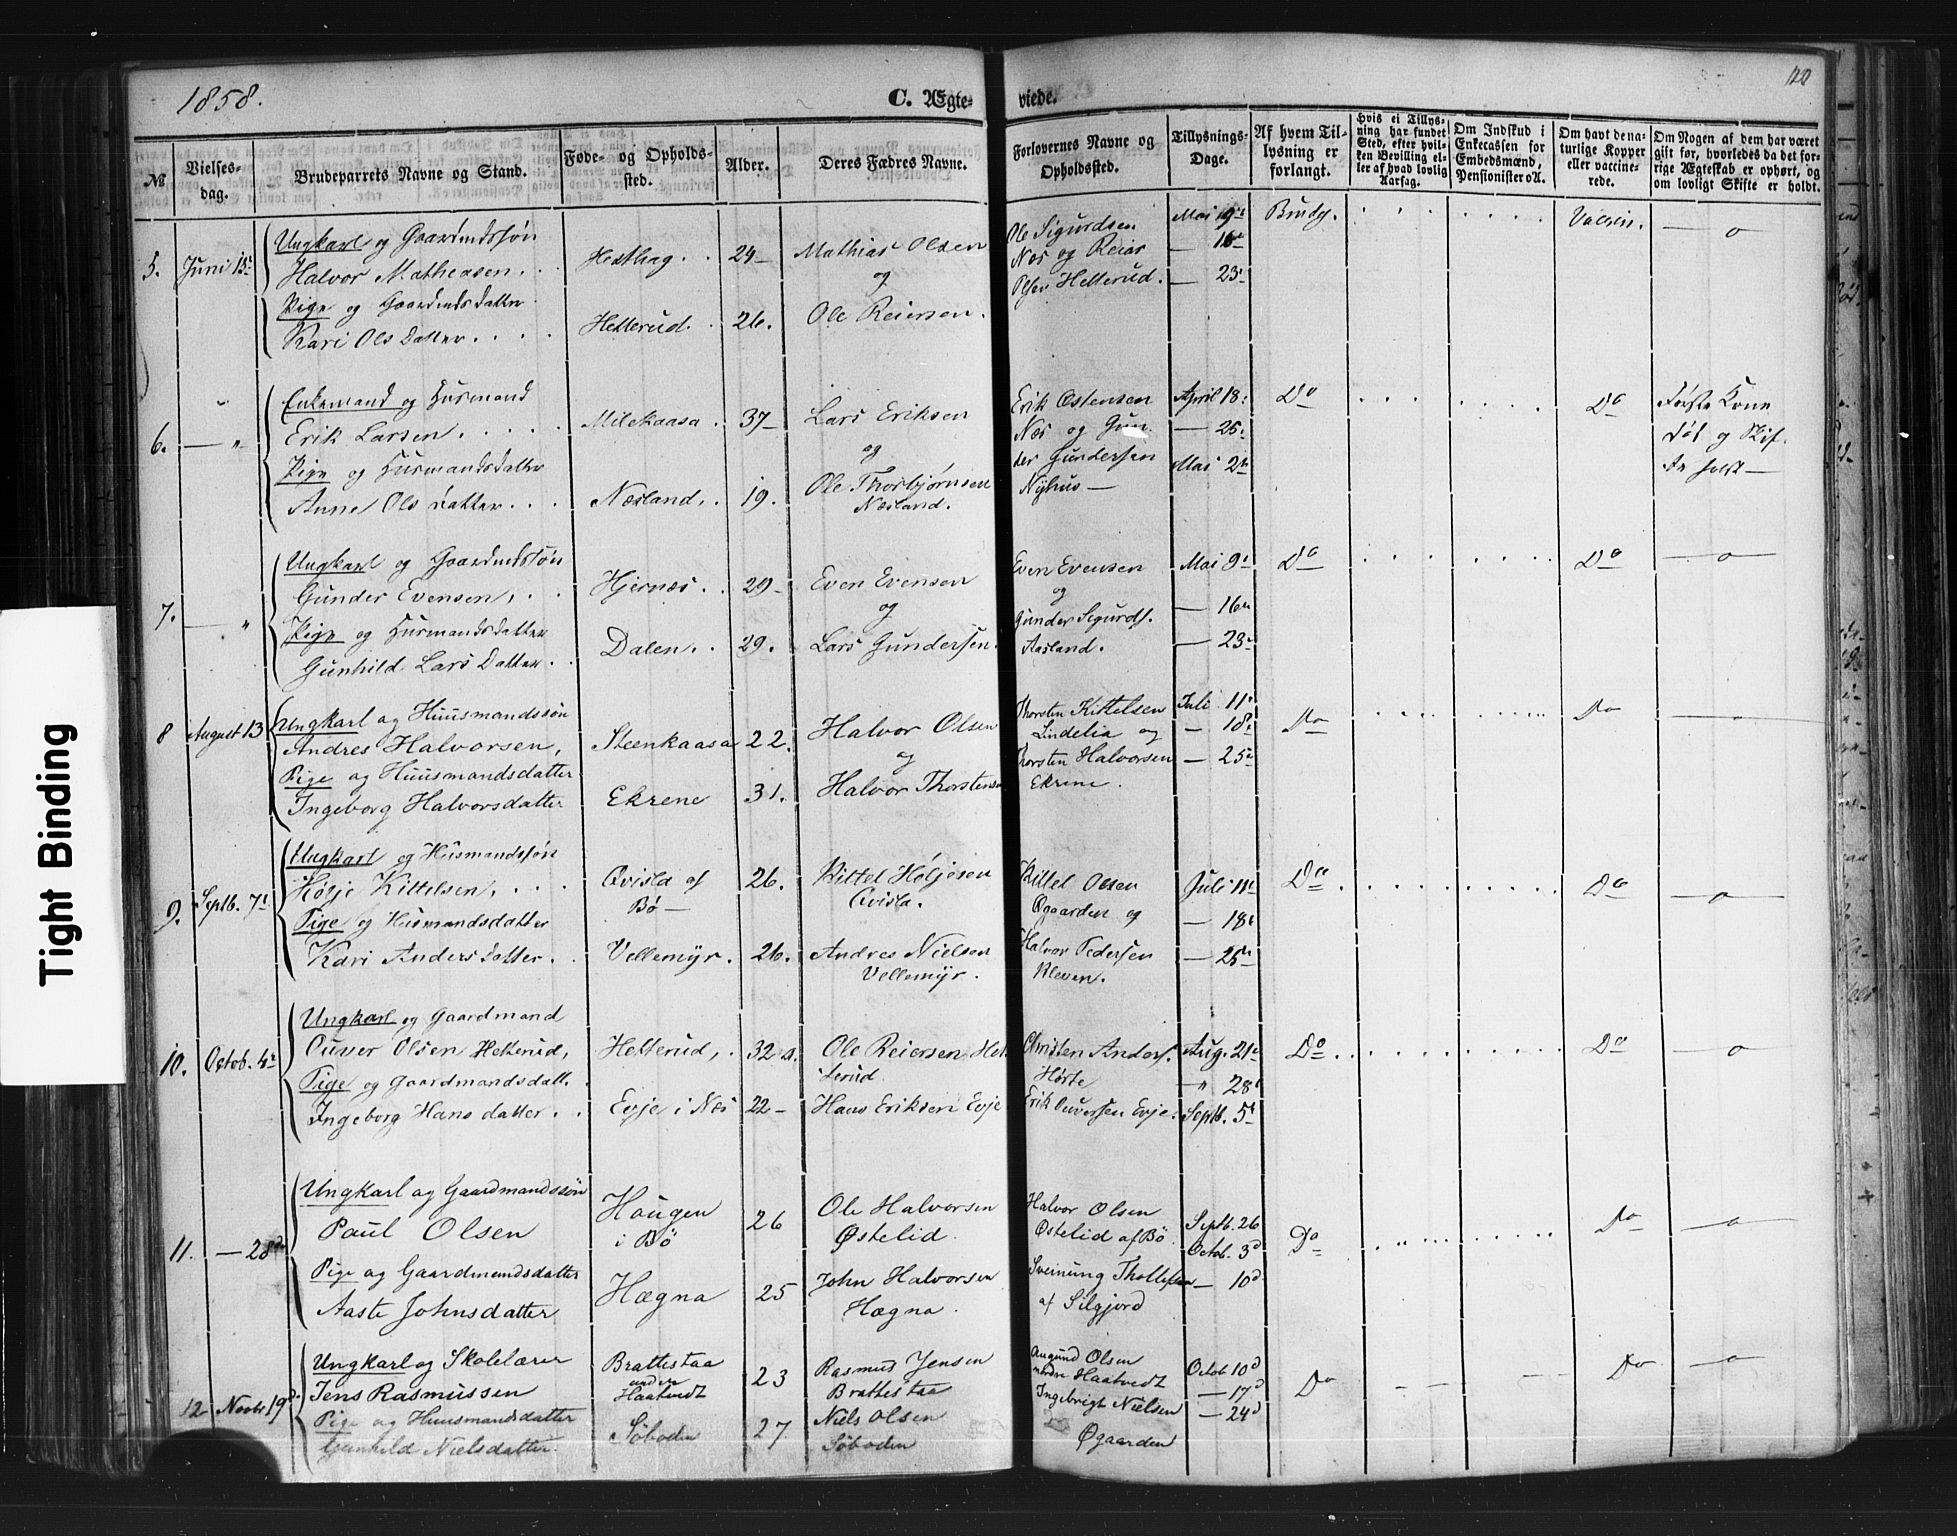 1858.
C. Ægte-
viede.
120
№
Vielses-
dag.
Brudeparrets Navne og Stand.
Føde- og Opholds-
sted.
Alder.
Deres Fædres Navne.
Forlovernes Navne og
Opholdssted.
Tillysnings-
Dage.
Af hvem Til-
lysning er
forlangt.
Hvis ei Tillys-
ning har fundet
Sted, efter hvil-
ken Bevilling el-
ler af hvad lovlig
Aarsag.
Om Indskud i
Enkecassen for
Embedsmænd,
Pensionister o. A.
Om havt de na-
turlige Kopper
eller vaccine-
rede.
Om Nogen af dem har været
gift før, hvorledes da det for-
rige Ægteskab er ophørt, og
om lovligt Skifte er holdt.
5.
Juni 15d
Ungkarl og Gaardmdssøn
Halvor Matheasen . .
Pige og Gaardmdsdatter
Kari Olsdatter . . . .
Hesthag . .
Hetterud . .
24-
26.
Mathias Olsen
og
Ole Reiersen.
Ole Sigurdsen
Næs og Reiar
Olsen Hetterud.
Mai 9d
— 16d
— 23d
Brudg.
Vaccin.
—o—
6.
— "
Enkemand og Husmand
Erik Larsen . . . . .
Pige og Husmandsdatter
Anne Olsdatter . . .
Milekaasa .
Næsland, .
37-
19.
Lars Eriksen
og
Ole Thorbjørnsen
Næsland.
Erik Østensen
Næs og Gun-
der Gundersen
Nyhus —
April 18d
— 25d
Mai 2n
Do
Do
Første Kone
død og Skif-
te holdt —
7.
— "
Ungkarl og Gaardmdssøn
Gunder Evensen, . .
Pige og Husmandsdatter
Gunhild Larsdatter . .
Hjernæs . .
Dalen . .
29-
29.
Even Evensen
og
Lars Gundersen.
Even Evensen
og
Gunder Sigurds.
Aasland.
Mai 9d
— 16n
— 23d
Do
Do
—o—
8
August 13
Ungkarl og Huusmandssøn
Andres Halvorsen,
Pige og Huusmandsdatter
Ingeborg Halvorsdatter
Steenkaasa
Ekrene
22.
31.
Halvor Olsen
og
Halvor Thorstens
Thorsten Kittelsen
Lindelia og
Thorsten Halvorsen
Ekrene.
Juli 11d
— 18d
— 25d
Do
Do
—o—
9.
Septb. 7d
Ungkarl og Husmandssøn
Hølje Kittelsen, . . .
Pige og Husmandsdatter
Kari Andersdatter .
Qvisla af
Bø —
Vellemyr .
26.
26.
Kittel Høljesen
Qvisla.
Andres Nielsen
Vellemyr.
Kittel Olsen
Øgaarden og
Halvor Pedersen
Kleven.
Juli 11d
— 18d
— 25n
Do
Do
—o—
10.
Octob. 4d
Ungkarl og Gaardmand
Ouver Olsen Hetterud,
Pige og Gaardmandsdatt.
Ingeborg Hansdatter . .
Hetterud, .
Evje i Næs
32
22-
Ole Reiersen Het
terud
Hans Eriksen Evje
Christen Anders.
Hørte
Erik Ouversen Evje.
Aug. 21d
" 28d
Septb. 5d
Do
Do
—o—
11.
— 28de
Ungkarl og Gaardmandssøn
Paul Olsen
Pige og Gaardmandsdatter
Aaste Johnsdatter
Haugen
i Bø
Hægna
26
25
Ole Halvorsen
Østelid
John Halvorsen
Hægna.
Halvor Olsen
Østelid af Bø
Sveinung Thollefsen
af Silgjord
Septb. 26
Octob. 3d
— 10d
Do
Do
—o—
12
Novbr 19d
Ungkarl og Skolelærer
Jens Rasmussen
Pige og Huusmandsdatter
Gunhild Nielsdatter.
Brattestaa
under
Haatvedt
Søboden
23
27
Rasmus Jensen
Brattestaa
Niels Olsen
Søboden
Augund Olsen
nordre Haatvedt
Ingebrigt Nielsen
Øgaarden
Octob 10d
— 17d
— 24d
Do
Do
—o—
Tight Binding